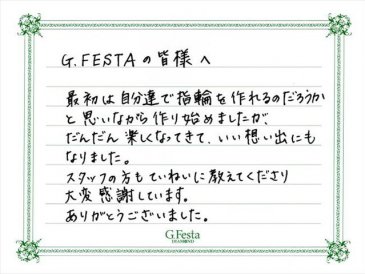 G.FESTAの皆様へ
最初は自分達で指輪を作れるのだろうか
と思いながら作り始めましたが、
だんだん楽しくなってきて、いい想い出にも
なりました。
スタッフの方もていねいに教えてくださり
大変感謝しています。
ありがとうございました。
G.Festa
DIAMOND